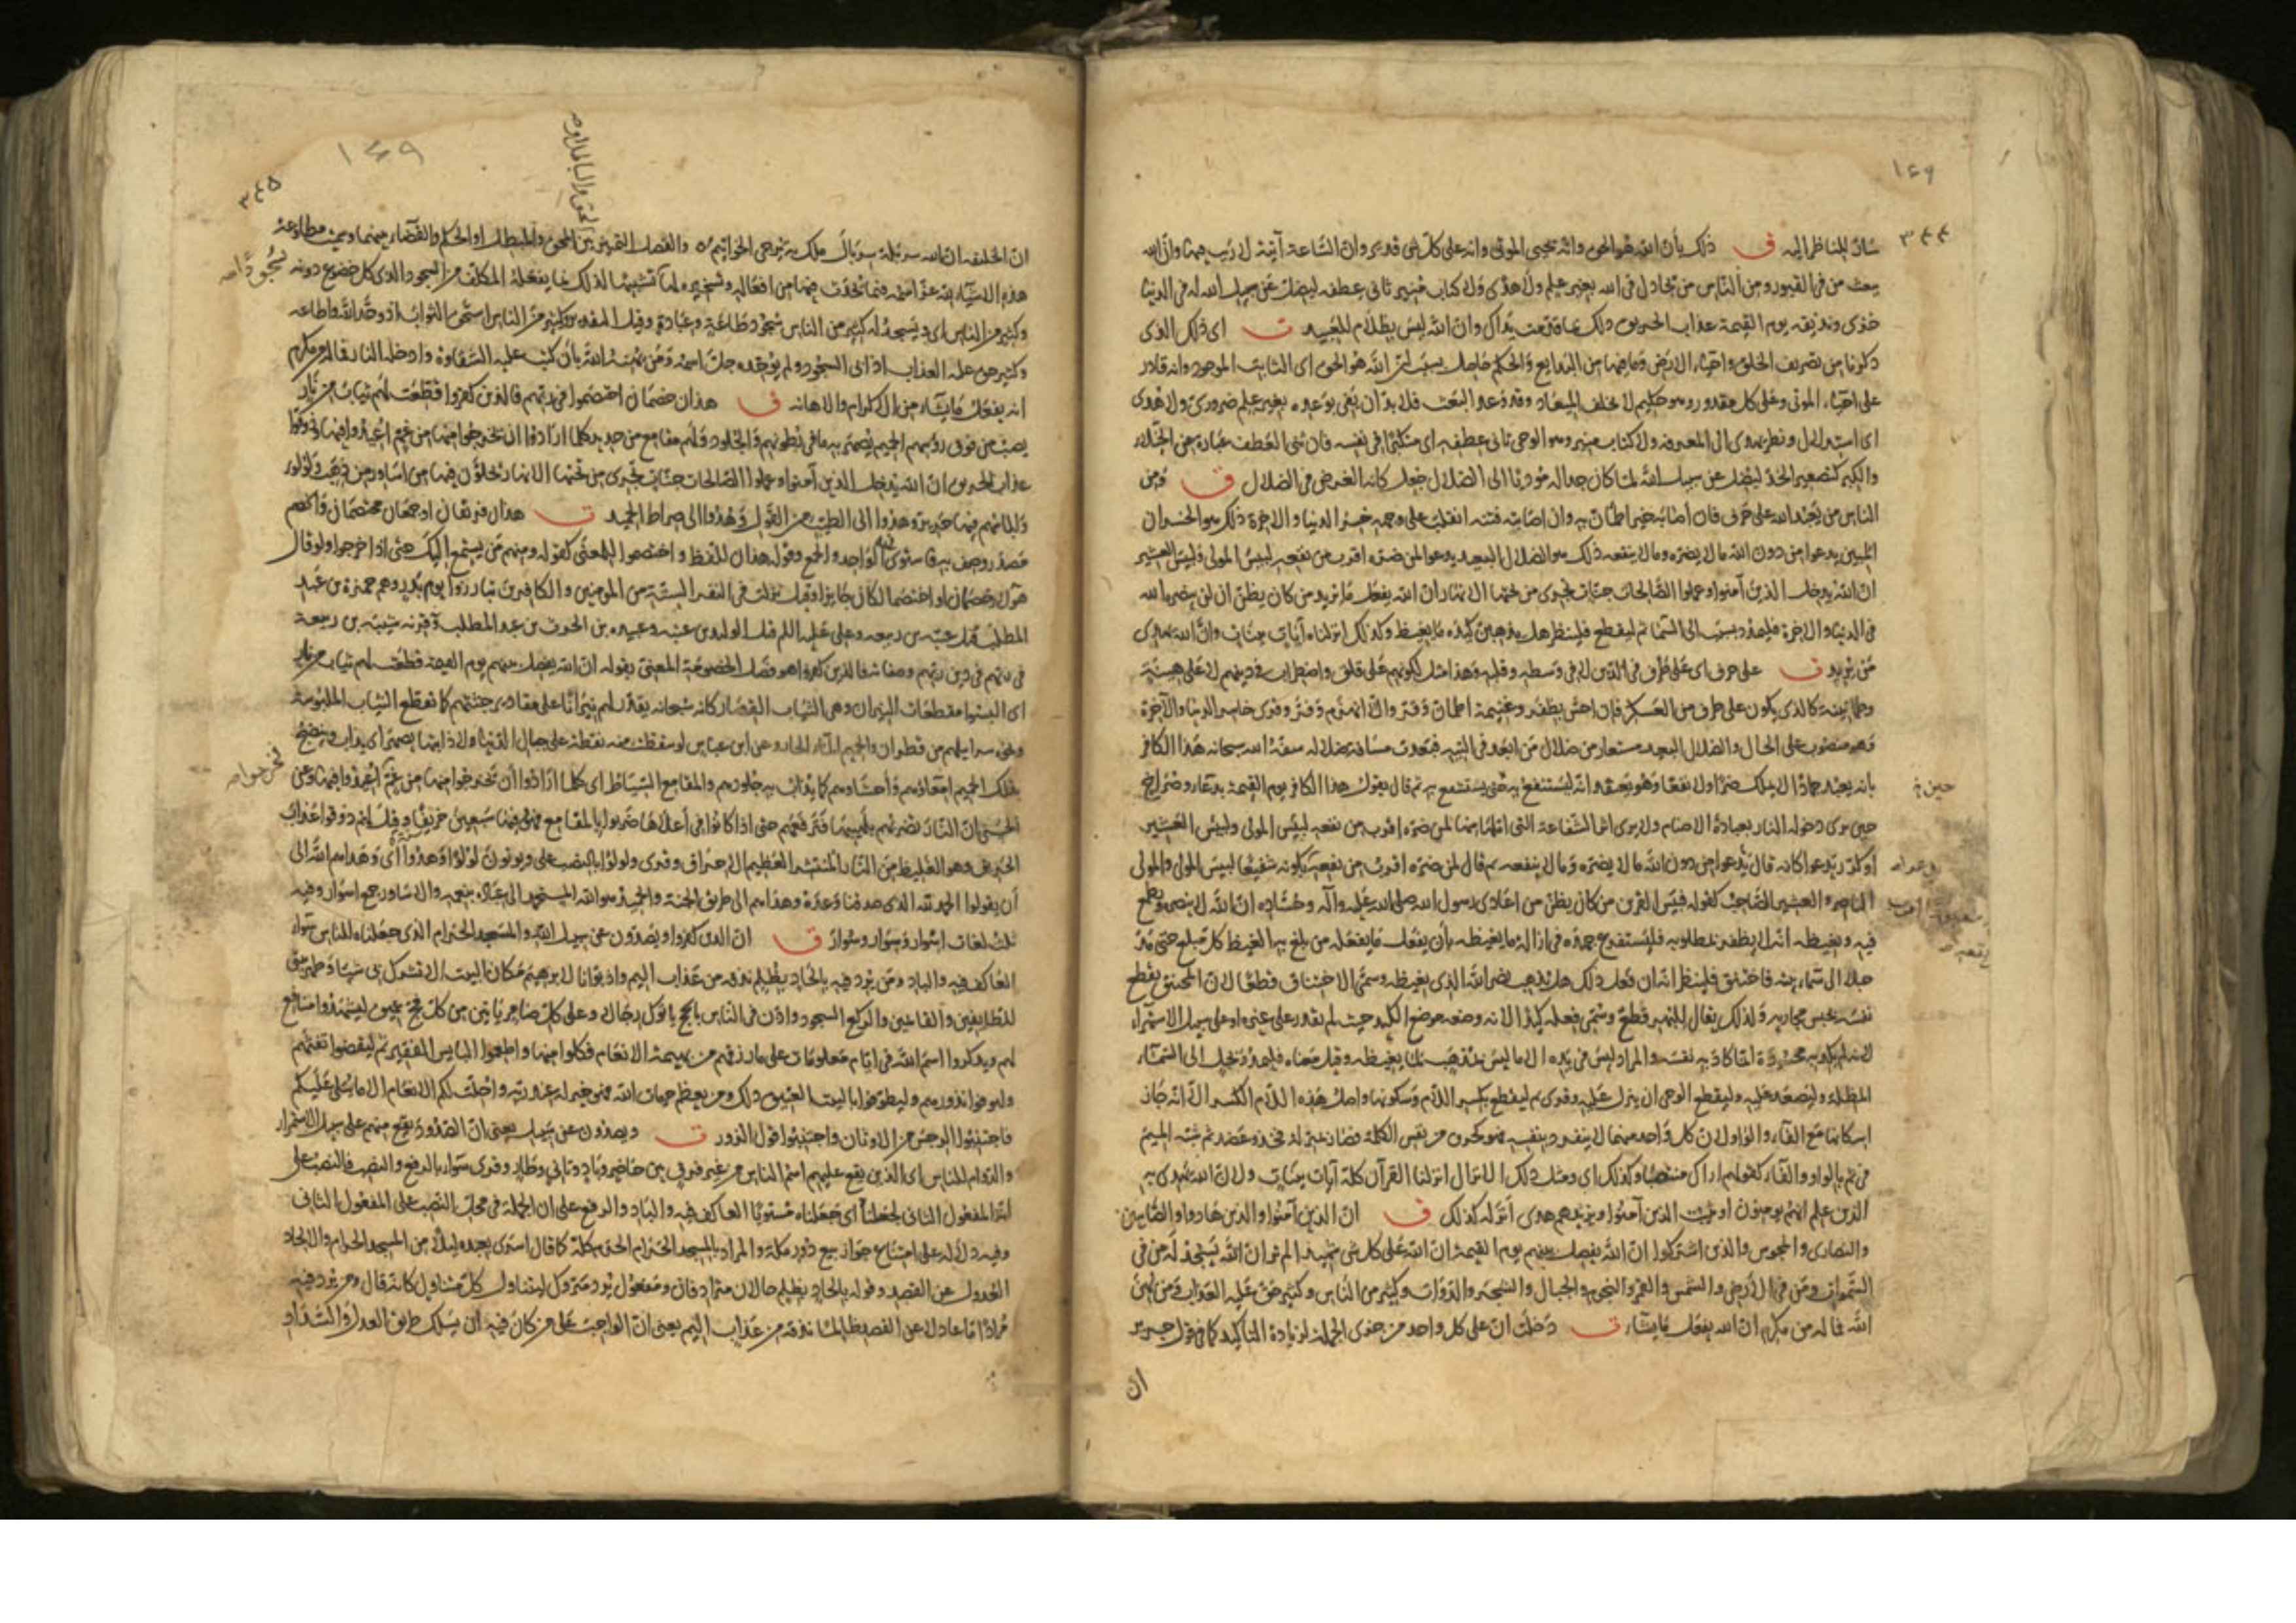 ١٤٩
٣٤٤
سارّ للناظر اليه ق ذلك بأن الله هو الحق وانّه يحيى الموتى وانه على كلّ شئ قدير وان السّاعة آتية لا ريب فيها وانّ الله
يبعث من فى القبور ومن النّاس من يجادل فى الله بغير علم ولا هدًى ولا كتاب منير ثانى عطفه ليضل عن سبيل الله له فى الدنيا
خزى ونذيقه يوم القيمة عذاب الحريق ذلك بما قدّمت يداك وانّ الله ليس بظلّام للعبيد ت اى ذلك الذى
ذكرنا من تصريف الخلق واحياء الارض وما فيها من البدايع والحكم حاصل بسبب انّ الله هو الحق اى الثابت الموجود وانه قادر
على احياء الموتى وعلى كل مقدور وهو حكيم لا يخلف الميعاد وقد وعد البعث فلا بدّ ان يفى بوعده بغير علم ضرورى ولا هدى
اى استدلال ونظر يهدى الى المعرفة ولا كتاب منير وهو الوحى ثانى عطفه اى متكبّرا فى نفسه فان ثنى العطف عبارة عن الخيلاء
والكبر كتصعير الخدّ ليضل عن سبيل الله لما كان جداله مؤديا الى الضلال جعل كانه الغرض فى الضلال ق ومن
الناس من يعبد الله على حرف فان اصابه خير اطمأن به وان اصابته فتنة انقلب على وجهه خسر الدنيا والاخرة ذلك هو الخسران
المبين يدعوا من دون الله ما لا يضره وما لا ينفعه ذلك هو الضلال البعيد يدعوا لمن ضرّه اقرب من نفعه لبئس المولى ولبئس العشير
ان الله يدخل الذين آمنوا وعملوا الصّالحات جنّات تجرى من تحتها الانهار ان الله يفعل ما يريد من كان يظنّ ان لن ينصره الله
فى الدنيا والاخرة فليمدد بسبب الى السّماء ثم ليقطع فلينظر هل يذهبن كيده ما يغيظ وكذلك انزلناه آيات بينات وانّ الله يهدى
من يريد ت على حرف اى على طرف فى الدّين لا فى وسطه وقلبه وهذا مثل لكونهم على قلق واضطراب فى دينهم لا على سكينة
وطمانينة كالذى يكون على طرف من العسكر فان احسّ بظفر وغنيمة اطمأنّ وقرّ والّا انهزم وفرّ وقرى خاسر الدنيا والآخرة
وهو منصوب على الحال والضلال البعيد مستعار من ضلال من ابعد فى التيه فبعدت مسافة ضلاله سفّه الله سبحانه هذا الكافر
بانه يعبد جمادا لا يملك ضرّا ولا نفعا وهو يعتقد انّه يستنفع به حين يستشفع به ثم قال يقول هذا الكافر يوم القيمة بدعاء وصراخ
حين
حين يرى دخوله النار بعبادة الاصنام ولا يرى اثر الشّفاعة التى ادّعاها لها لمن ضرّه اقرب من نفعه لبئس المولى ولبئس العشير
او كرّر يدعوا كانه قال يدعوا من دون الله ما لا يضره وما لا ينفعه ثم قال لمن ضره اقرب من نفعه بكونه شفيعا لبئس المولى والمولى
الناصر والعشير الصّاحب كقوله فبئس القرين من كان يظنّ من اعادى رسول الله صلى الله عليه وآله وحسّاده انّ الله لا ينصره ويطمع
فيه ويغيظه انّه لا يظفر بمطلوبه فليستفرغ جهده فى ازالة ما يغيظه بأن يفعل ما يفعله من بلغ به الغيظ كل مبلغ حتى مدّ
حبلا الى سماء بيته فاختنق فلينظر انه ان فعل ذلك هل يذهب نصر الله الذى يغيظه وسمّى الاختناق قطعًا لانّ المختنق يقطع
نفسه بحبس مجاريه ولذلك يقال للبُهر قطع وسمّى فعله كيدا لانه وضعه موضع الكيد حيث لم يقدر على غيره او على سبيل الاستهزاء
لانه لم يكد به محسوده انّما كاد به نفسه والمراد ليس فى يده الا ما ليس بمذهب لما يغيظه وقيل معناه فليمدد بحبل الى السّماء
المظلّة وليصعد عليه وليقطع الوحى ان ينزل عليه وقرى ثم ليقطع بكسر اللّام وسكونها واصل هذه اللّام الكسر الا انه جاز
اسكانها مع الفاء والواو لانّ كل واحد منهما لا ينفرد بنفسه فهو كحرف من نفس الكلمة فصار بمنزلة فخذ وعضد ثم شبّه الميم
فى ثم بالواو والفاء كقولهم اراك منتفخا وكذلك اى ومثل ذلك الانزال انزلنا القرآن كلّه آيات بينات ولانّ الله يهدى به
الذين علم انهم يومنون او يثبت الذين آمنوا ويزيدهم هدى انزله كذلك ق ان الذين آمنوا والذين هادوا والصّابئين
والنصارى والمجوس والذين اشركوا انّ الله يفصل بينهم يوم القيمة انّ الله على كل شئ شهيد الم تر انّ الله يسجد له من فى
السّموات ومن فى الارض والشمس والقمر والنجوم والجبال والشجر والدّوابّ وكثير من النّاس وكثير حقّ عليه العذاب ومن يهن
الله فما له من مكرم ان الله يفعل ما يشاء ت دخلت انّ على كل واحد من جزئى الجملة لزيادة التأكيد كما فى قول جرير
ان
١٤٩
٣٤٥
انّ الخليفة انّ الله سربله سربال ملك به ترجى الخواتيم ٥ والفصل التمييز بين المحق والمبطل او الحكم والقضاء بينهما وسميت مطاوعة
هذه الاشياء لله عز اسمه فيما يحدث فيها من افعاله وتسخيره لها تشبيها لذلك بما يفعله المكلف من السجود الذى كل خضوع دونه
سجودًا صه
وكثير من الناس اى ويسجد له كثير من الناس سجود طاعة وعبادة وقيل المقدر وكثير من الناس استحق الثواب اذ وحّد الله واطاعه
وكثير حق عليه العذاب اذ ابى السجود ولم يوحده جلّ اسمه ومن يهنه الله بأن كتب عليه الشقاوة وادخله النار فما له من مكرم
انه يفعل ما يشاء من الاكرام والاهانة ق هذان خصمان اختصموا فى ربهم فالذين كفروا قطّعت لهم ثياب من نار
يصبّ من فوق رؤسهم الحميم يصهر به ما فى بطونهم والجلود ولهم مقامع من حديد كلما ارادوا ان يخرجوا منها من غمّ اعيدوا فيها وذوقوا
عذاب الحريق ان الله يدخل الذين آمنوا وعملوا الصّالحات جنّات تجرى من تحتها الانهار يحلّون فيها من اساور من ذهب ولؤلؤا
ولباسهم فيها حرير وهدوا الى الطيّب من القول وهدوا الى صراط الحميد ت هذان فريقان او جمعان مختصمان والخصم
مصدر وصف به فاستوى فيه الواحد والجمع وقوله هذان للّفظ واختصموا للمعنى كقوله ومنهم من يستمع اليك حتى اذا خرجوا ولو قال
هؤلاء خصمان او اختصما لكان جايزا وقيل نزلت فى النفر الستة من المومنين والكافرين تبارزوا يوم بدر وهم حمزة بن عبد
المطلب قتل عتبة بن ربيعه وعلى عليه السلم قتل الوليد بن عتبة وعبيدة بن الحرث بن عبد المطلب وقرنه شيبة بن ربيعة
فى ربهم فى دين ربّهم وصفاته فالذين كفروا هو فصل الخصومة المعنى بقوله ان الله يفصل بينهم يوم القيمة قطعت لهم ثياب من نار
اى البسوا مقطعات النيران وهى الثياب القصار كانه سبحانه يقدّر لهم نيرانًا على مقادير جثثهم كما تقطع الثياب الملبوسة
ونحوه سرابيلهم من قطران والحميم الماء الحار وعن ابن عباس لو سقطت منه نقطة على جبال الدنيا لاذابتها يصهر اى يذاب وينضج
بذلك الحميم امعاؤهم واحشاؤهم كما يذاب به جلودهم والمقامع السّياط اى كلما ارادوا أن يخرجوا منها من غمّ اعيدوا فيها وعن
فخرجوا صه
الحسن انّ النّار تضربهم بلهبها فترفعهم حتى اذا كانوا فى أعلاها ضربوا بالمقامع فهووا فيها سبعين خريفًا وقيل لهم ذوقوا عذاب
الحريق وهو الغليظ من النّار المنتشر العظيم الاحراق وقرى ولؤلؤا بالنصب على ويوتون لؤلؤا وهدوا اى وهداهم الله الى
أن يقولوا الحمد لله الذى صدقنا وعده وهداهم الى طريق الجنة والحميد هو الله المستحمد الى عباده بنعمه والاساور جمع اسوار وفيه
ثلث لغات اسوار وسوار وسُوار ق ان الذين كفروا ويصدّون عن سبيل الله والمسجد الحرام الذى جعلناه للناس سواء
العاكف فيه والباد ومن يرد فيه بالحاد بظلم نذقه من عذاب اليم واذ بوّأنا لابرهيم مكان البيت الا تشرك بى شيئا وطهّر بيتى
للطّايفين والقايمين والركع السجود واذّن فى النّاس بالحج ياتوك رجالا وعلى كل ضامر ياتين من كل فج عميق ليشهدوا منافع
لهم ويذكروا اسم الله فى ايام معلومات على ما رزقهم من بهيمة الانعام فكلوا منها واطعموا البايس الفقير ثم ليقضوا تفثهم
وليوفوا نذورهم وليطّوّفوا بالبيت العتيق ذلك ومن يعظم حرمات الله فهو خير له عند ربّه واحلّت لكم الانعام الا ما يتلى عليكم
فاجتنبوا الرجس من الاوثان واجتنبوا قول الزور ت ويصدّون عن سبيل يعنى انّ الصّدود يقع منهم على سبيل الاستمرار
والدوام للناس اى الذين يقع عليهم اسم الناس من غير فرق بين حاضر وباد وتانى وطار وقرى سواء بالرفع والنصب فالنصب على
انّه المفعول الثانى لجعلنا اى جعلناه مستويًا العاكف فيه والباد والرفع على ان الجملة فى محل النصب على المفعول الثانى
وفيه دلالة على امتناع جواز بيع دور مكة والمراد بالمسجد الحرام الحرم كله كما قال اسرى بعبده ليلا من المسجد الحرام والالحاد
العدول عن القصد وقوله بالحاد بظلم حالان مترادفان ومفعول يرد متروك ليتناول كلّ متناول كانه قال ومن يرد فيه
مرادًا ما عادلا عن القصد ظالما نذقه من عذاب اليم يعنى انّ الواجب على من كان فيه ان يسلك طريق العدل والسّداد